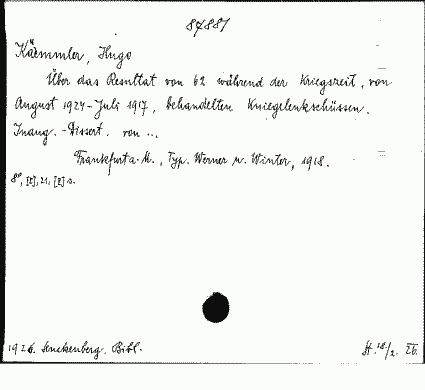 87881
Kaemmler, Hugo
Über das Resultat von 62 während der Kriegszeit, von
August 1924-Juli 1917, behandelten Kniegelenkschüssen.
Inaug.-Dissert. von ...
Frankfurt a. M., Typ. Werner u. Winter, 1918.
8°, [2], 21, [2] s.
1926. Senckenberg. Bibl.